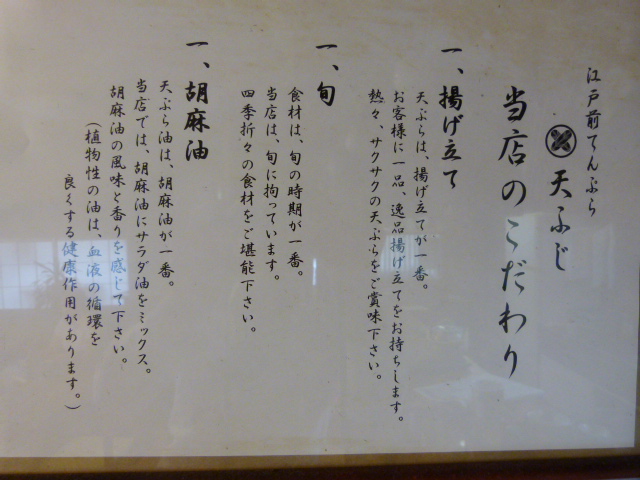 江戸前てんぷら
天ふじ
当店のこだわり
一、揚げ立て
天ぷらは、揚げ立てが一番。
お客様に一品、逸品揚げ立てをお持ちします。
熱々、サクサクの天ぷらをご賞味下さい。
一、旬
食材は、旬の時期が一番。
当店は、旬に拘っています。
四季折々の食材をご堪能下さい。
一、胡麻油
天ぷら油は、胡麻油が一番。
当店では、胡麻油にサラダ油をミックス。
胡麻油の風味と香りを感じて下さい。
（植物性の油は、血液の循環を
良くする健康作用があります。）